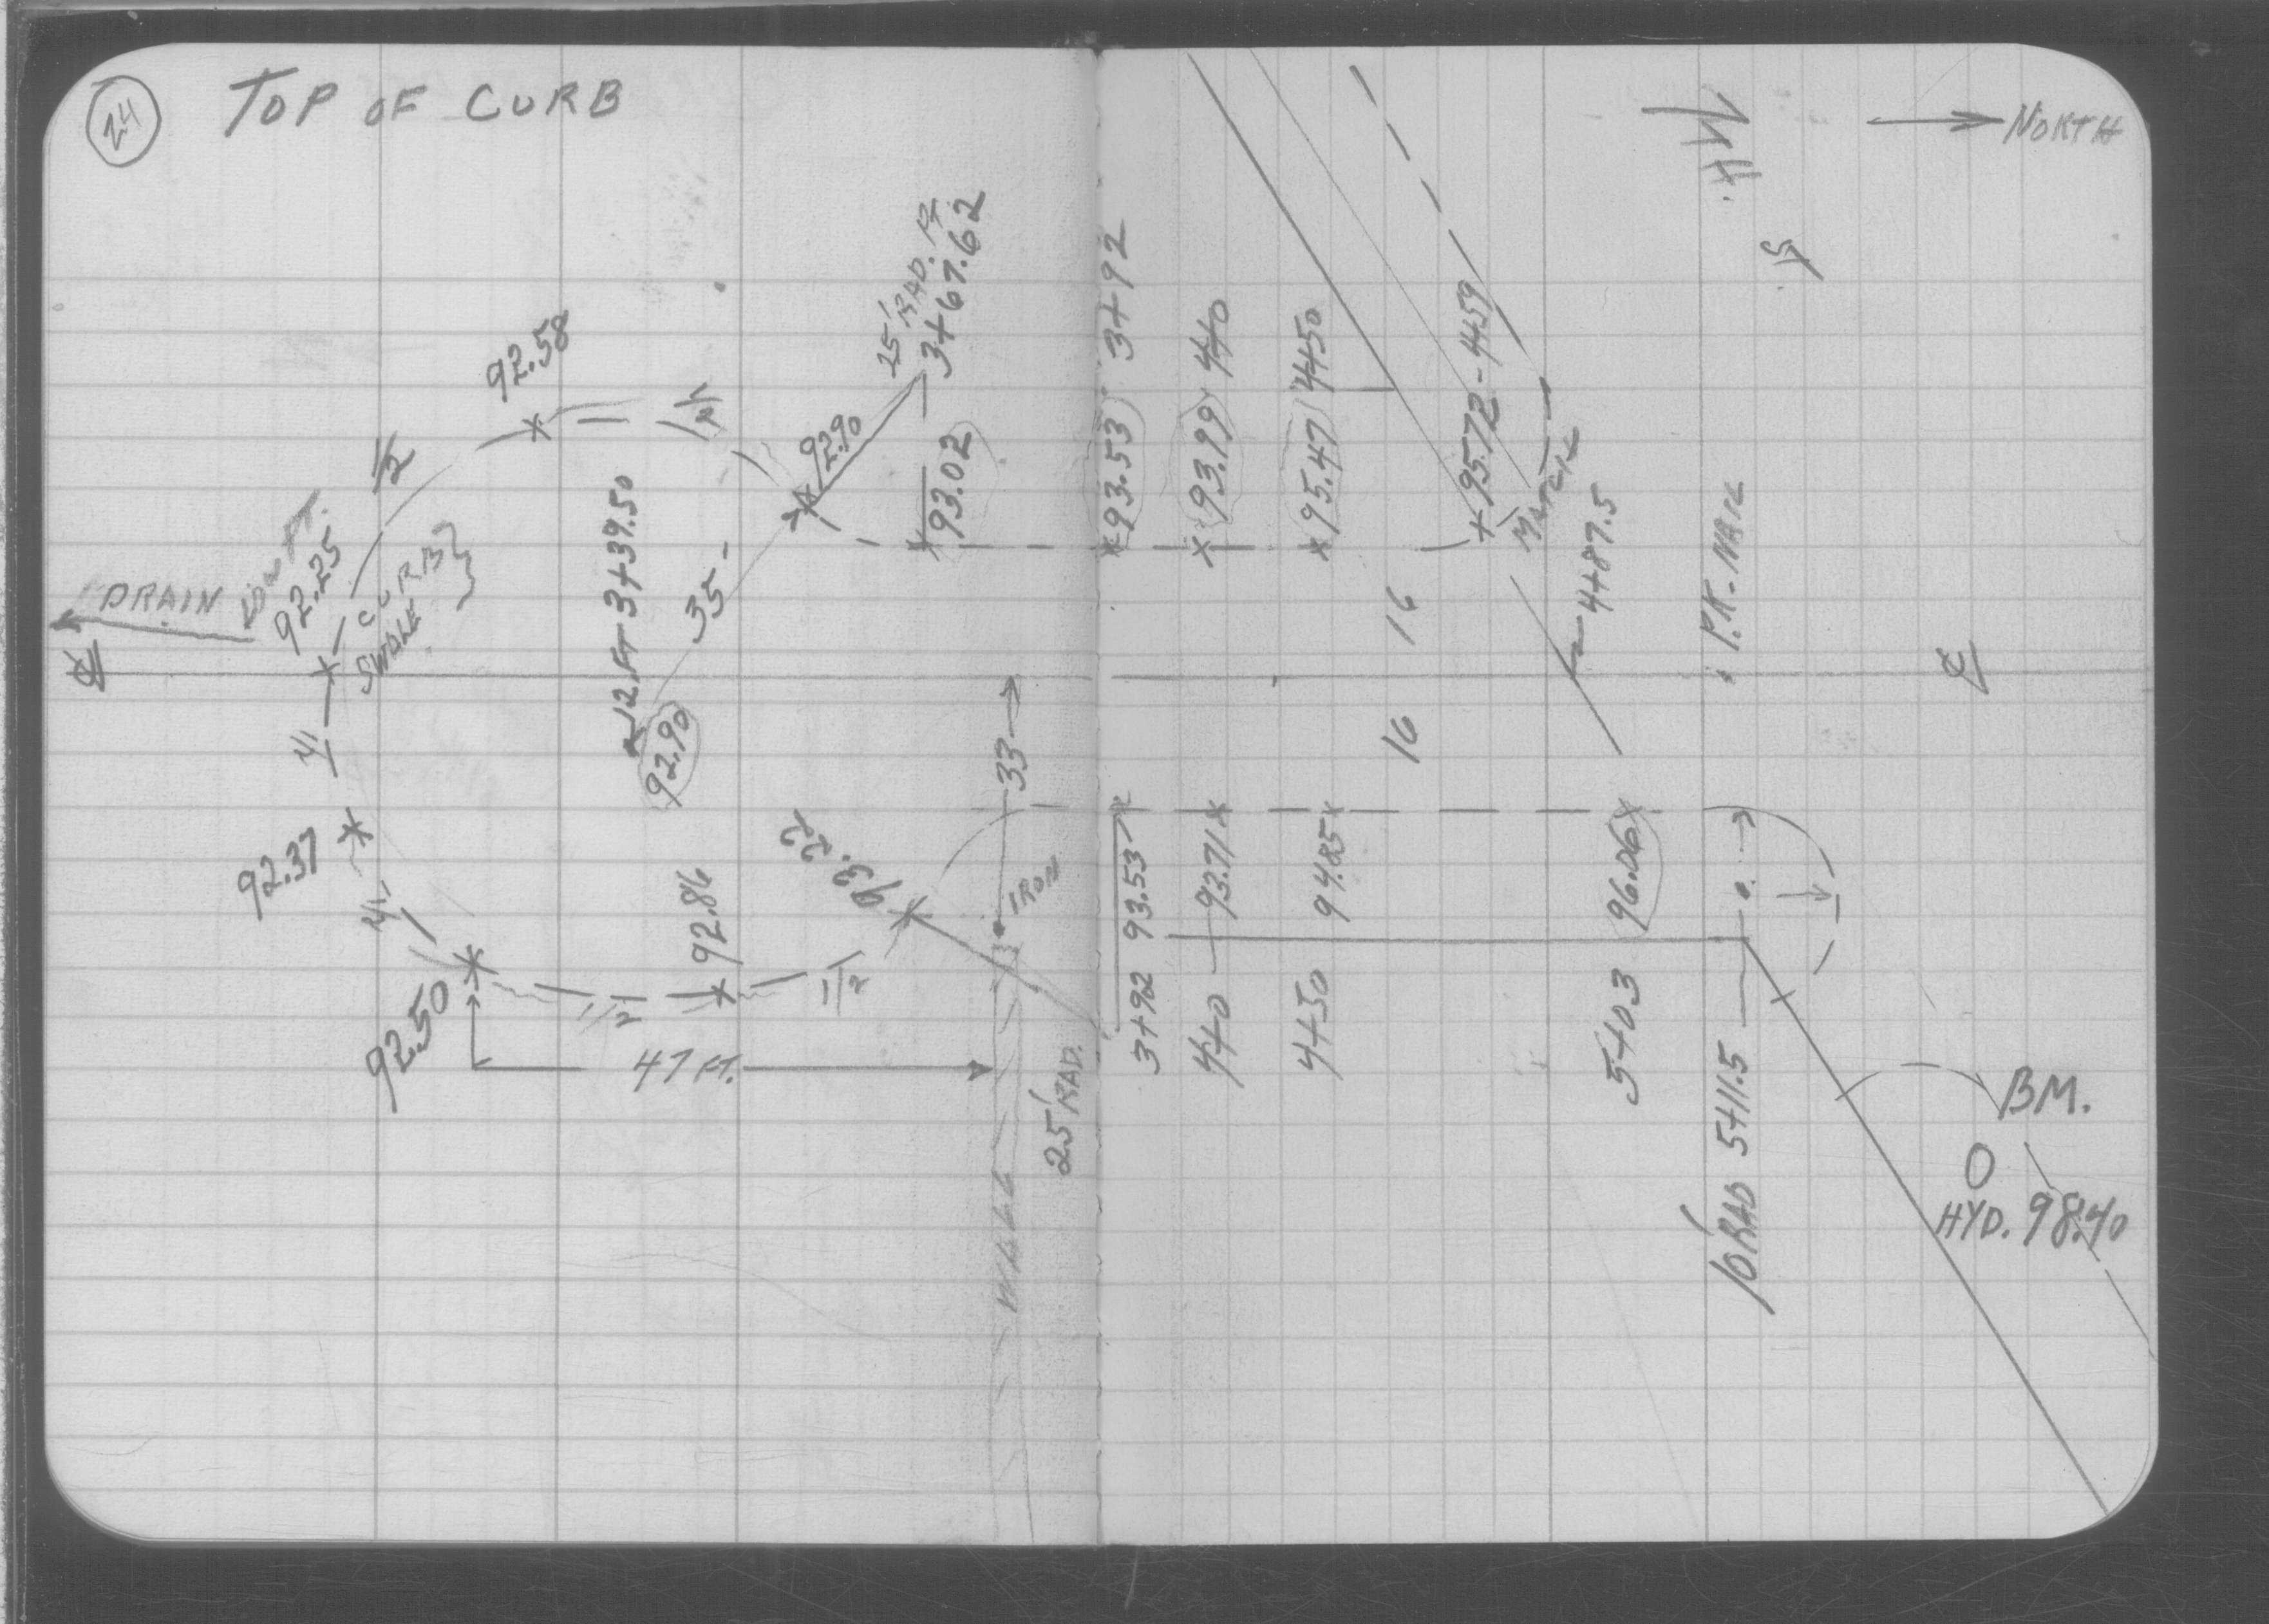 24
TOP OF CURB
NORTH
92.58
1/2
LOW PT.
92.25
DRAIN
CURB
SWALE
℄
12 FT 3+39.50
35
92.90
92.90
25' RAD. PT
3+67.62
93.02
93.53 3+92
93.99 4+0
95.47 4+50
95.72 - 4+59
MATCH
4+87.5
P.K. NAIL
℄
16
16
33
4'
92.37
4'
92.50
1/2
92.86
1/2
93.22
IRON
47 FT.
WALL
25' RAD.
3+92 93.53
4+0 93.71
4+50 94.85
5+03 96.06
10' RAD 5+11.5
BM.
HYD. 98.40